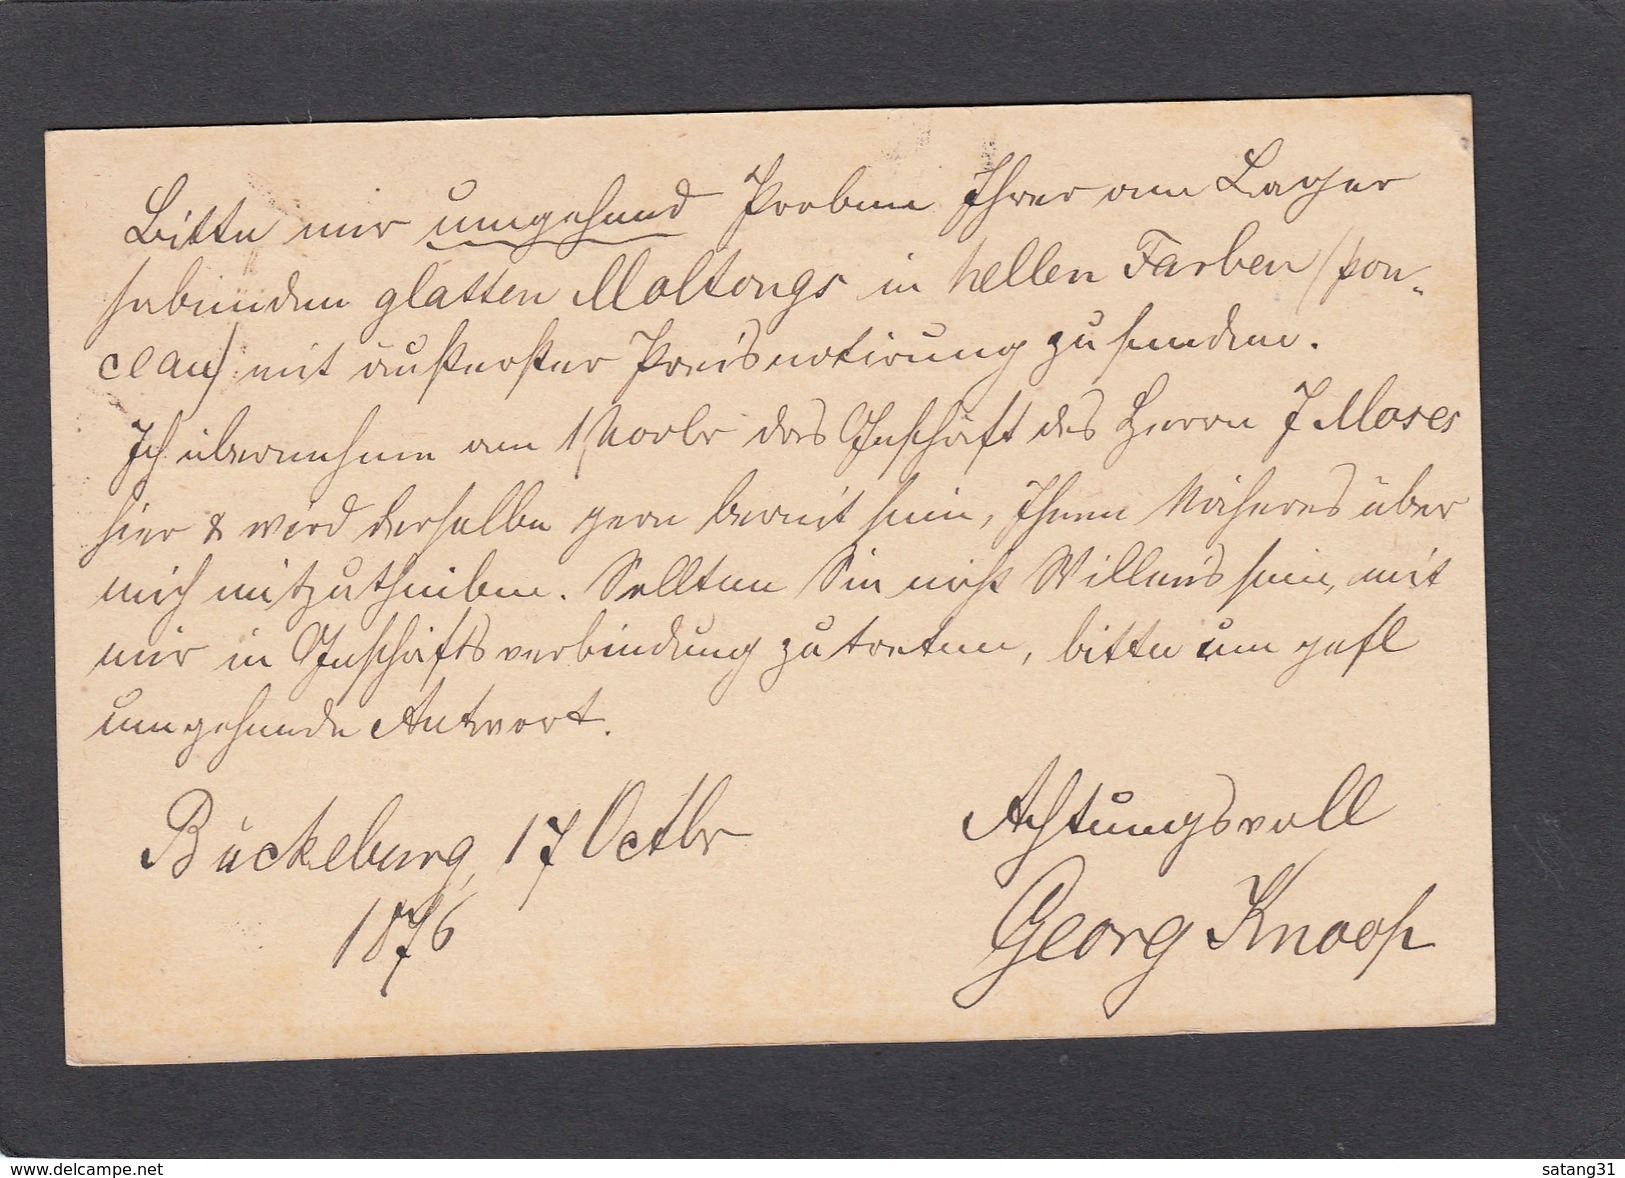 Bitte mir umgehend Proben Ihrer am Lager
habenden glatten Moltongs in hellen Farben (pon-
ceau) mit äußerster Preisnotirung zu senden.
Ich übernehme am 1 Novbr das Geschäft des Herrn J Moses
hier & wird derselbe gern bereit sein, Ihnen Näheres über
mich mitzutheilen. Sollten Sie nicht Willens sein, mit
mir in Geschäftsverbindung zu treten, bitte um gefl
umgehende Antwort.
Bückeburg, 17 Octbr
1876
Achtungsvoll
Georg Knoop
www.delcampe.net
satang31